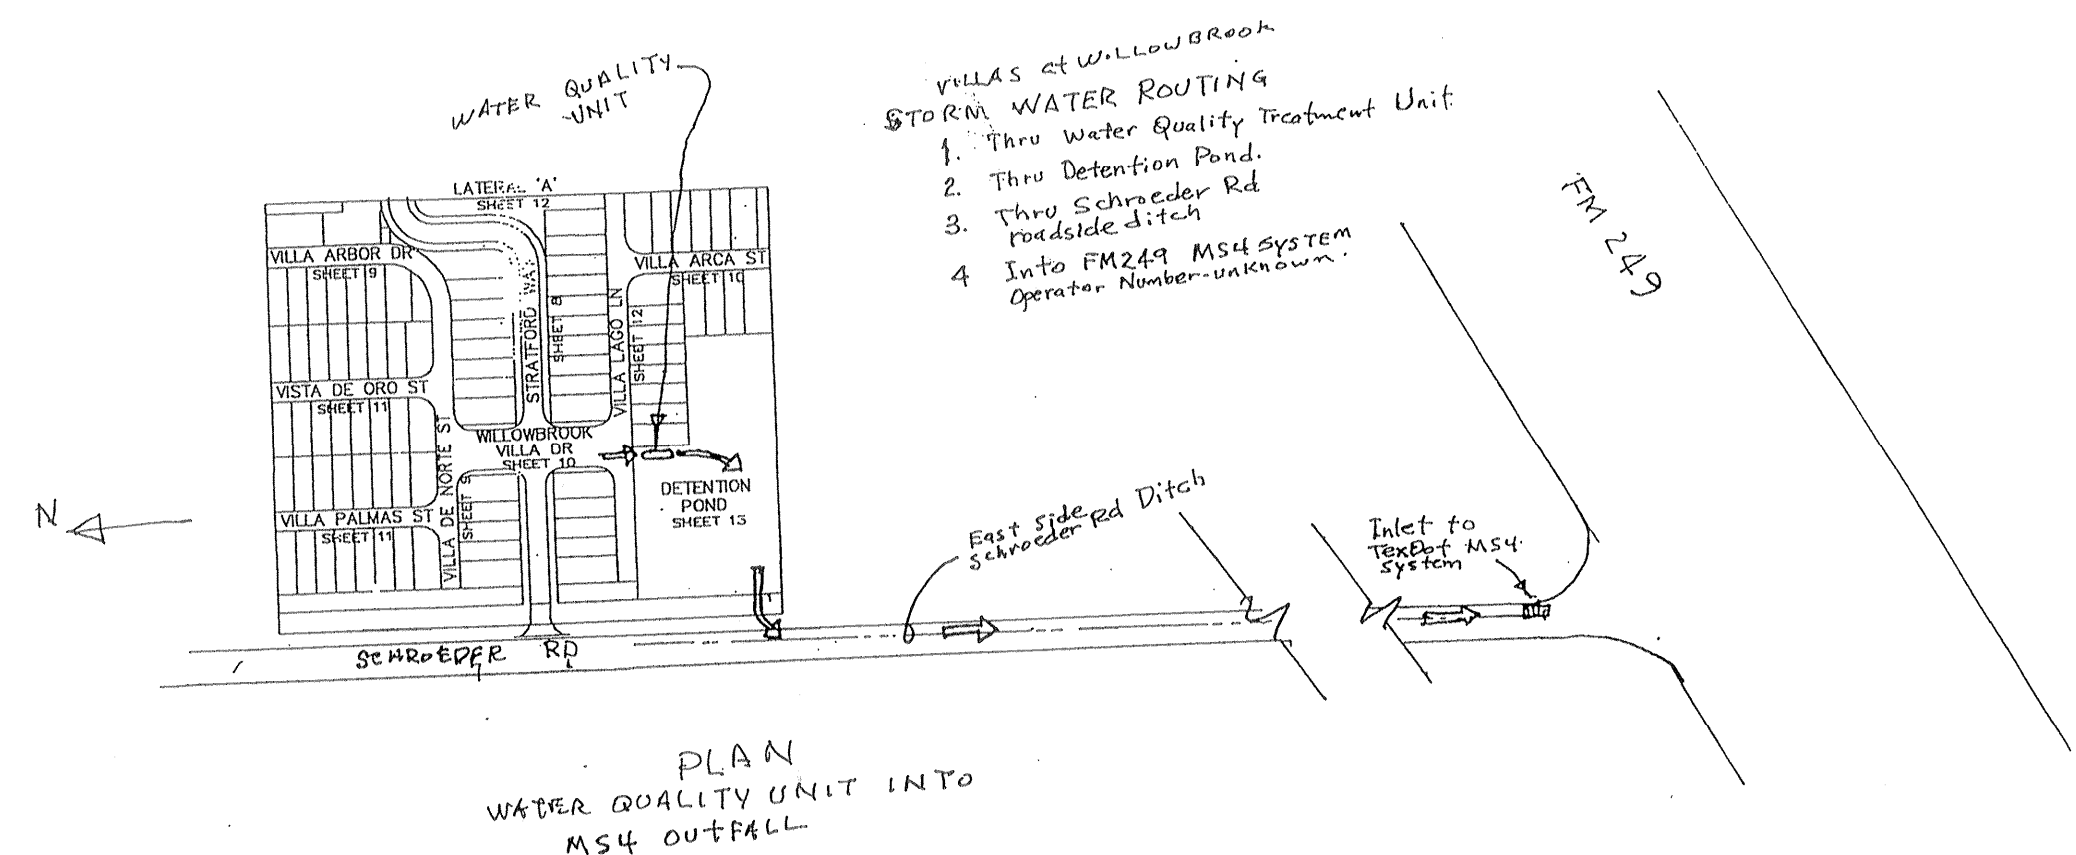 WATER QUALITY
UNIT
VILLAS at WILLOWBROOK
STORM WATER ROUTING
1. Thru Water Quality Treatment Unit
2. Thru Detention Pond.
3. Thru Schroeder Rd
roadside ditch
4 Into FM249 MS4 SYSTEM
Operator Number-unknown.
FM 249
LATERAL 'A'
SHEET 12
VILLA ARBOR DR
SHEET 9
VILLA ARCA ST
SHEET 10
STRATFORD WAY
SHEET 8
VILLA LAGO LN
SHEET 12
VISTA DE ORO ST
SHEET 11
WILLOWBROOK
VILLA DR
SHEET 10
VILLA DE NORTE ST
SHEET 9
VILLA PALMAS ST
SHEET 11
DETENTION
POND
SHEET 13
N
East side
Schroeder Rd Ditch
Inlet to
TexDot MS4
System
SCHROEDER RD
PLAN
WATER QUALITY UNIT INTO
MS4 OUTFALL